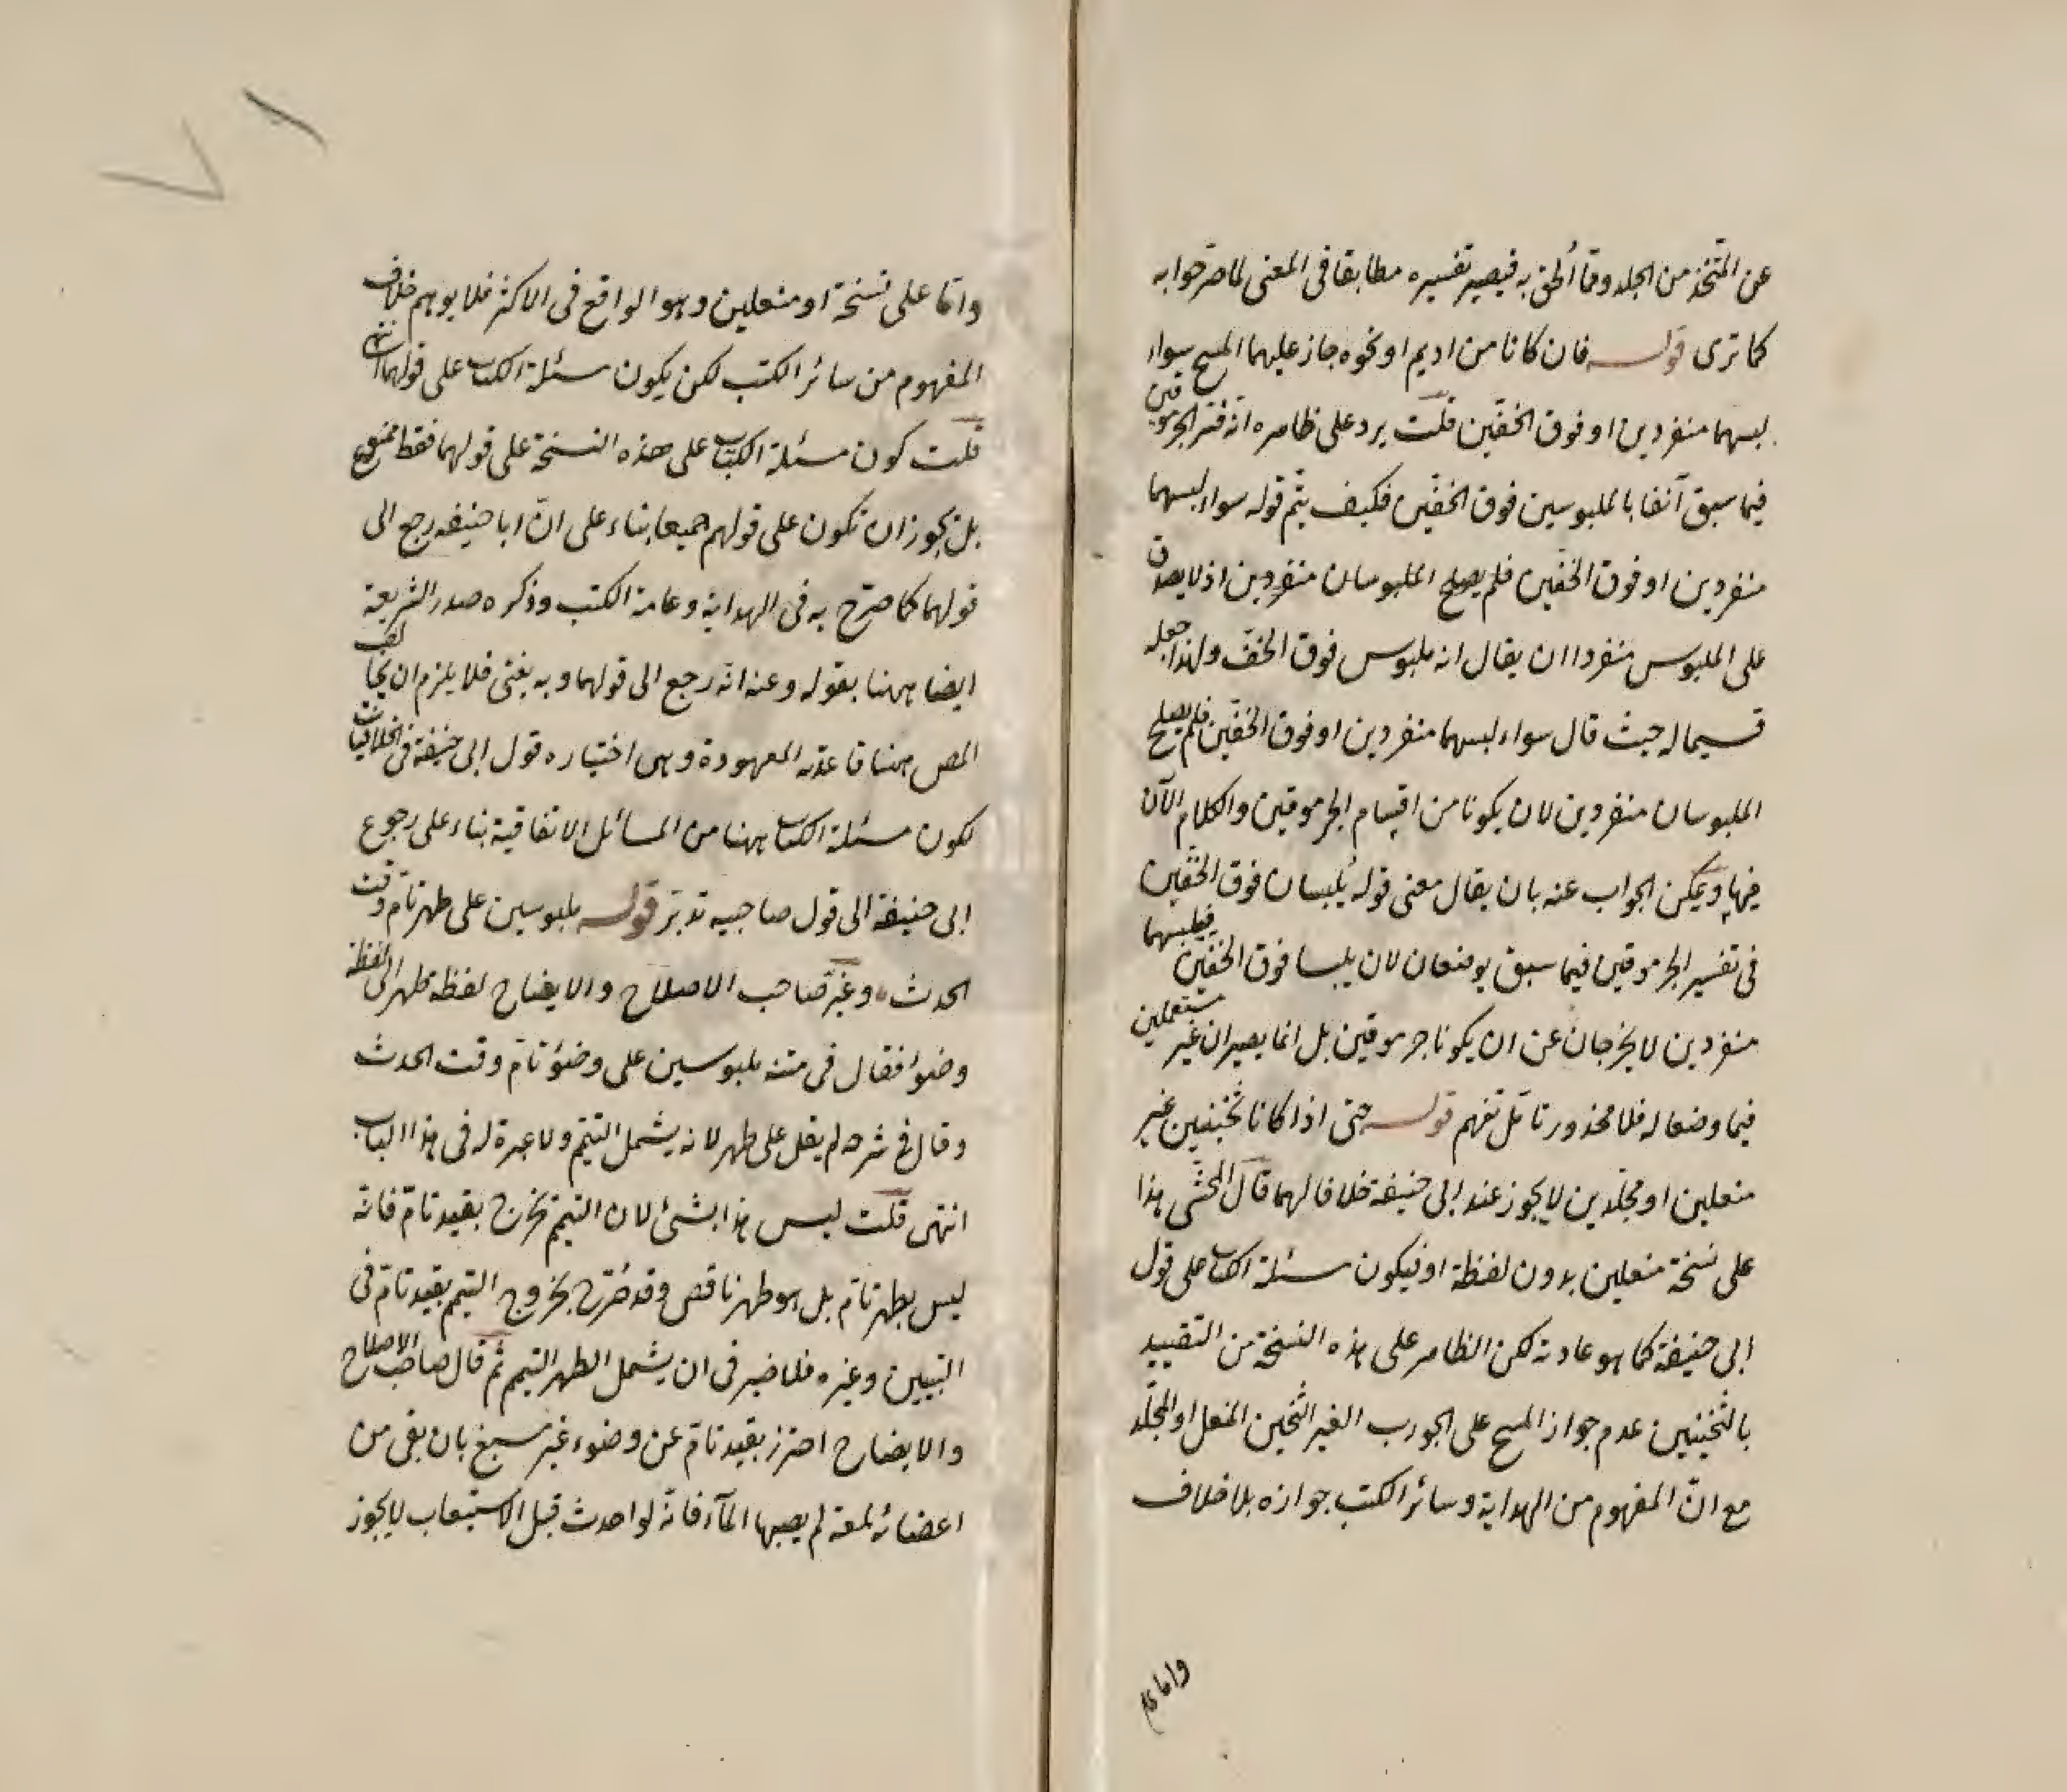 عن المتخذ من الجلد وما ألحق به فيصير تفسيره مطابقا في المعنى لما صرحوا به
كما ترى قوله فان كانا من اديم او نحوه جاز عليهما المسح سواء
لبسهما منفردين او فوق الخفين قلت يرد على ظاهره انه فسر الجرموقين
فيما سبق آنفا بالملبوسين فوق الخفين فكيف يتم قوله سواء لبسهما
منفردين او فوق الخفين فلم يصلح الملبوسان منفردين اذ لا يصدق
على الملبوس منفردا ان يقال انه ملبوس فوق الخف ولهذا جعله
قسيما له حيث قال سواء لبسهما منفردين او فوق الخفين فلم يصلح
الملبوسان منفردين لان يكونا من اقسام الجرموقين والكلام الآن
فيها ويمكن الجواب عنه بان يقال معنى قوله يُلبسان فوق الخفين
في تفسير الجرموقين فيما سبق يوضعان لان يلبسا فوق الخفين فيلبسهما
منفردين لا يخرجان عن ان يكونا جرموقين بل انما يصيران غير مستعملين
فيما وضعا له فلا محذور تأمل تفهم قوله حتى اذا كانا ثخينين غير
منعلين او مجلدين لا يجوز عند ابى حنيفة خلافا لهما قال المحشى هذا
على نسخة منعلين بدون لفظة او فيكون مسئلة الكتاب على قول
ابى حنيفة كما هو عادته لكن الظاهر على هذه النسخة من التقييد
بالثخينين عدم جواز المسح على الجورب الغير الثخين المنعل او المجلد
مع انّ المفهوم من الهداية وسائر الكتب جوازه بلا خلاف
واما
وامّا على نسخة او منعلين وهو الواقع في الاكثر فلا يوهم خلاف
المفهوم من سائر الكتب لكن يكون مسئلة الكتاب على قولهما انتهى
قلت كون مسئلة الكتاب على هذه النسخة على قولهما فقط ممنوع
بل يجوز ان تكون على قولهم جميعا بناء على انّ ابا حنيفه رجع الى
قولهما كما صرّح به في الهداية وعامة الكتب وذكره صدر الشريعة
ايضا ههنا بقوله وعنه انّه رجع الى قولهما وبه يفتى فلا يلزم ان يخالف
المص ههنا قاعدته المعهودة وهى اختياره قول ابى حنيفة في الخلافيات
لكون مسئلة الكتاب ههنا من المسائل الاتفاقية بناء على رجوع
ابى حنيفة الى قول صاحبيه تدبّر قوله ملبوسين على طهر تامّ وقت
الحدث وغيّر صاحب الاصلاح والايضاح لفظة طهر الى لفظة
وضوء فقال في متنه ملبوسين على وضوء تامّ وقت الحدث
وقال في شرحه لم يقل على طهر لانه يشمل التيمّم ولا عبرة له في هذا الباب
انتهى قلت ليس هذا بشئ لان التيمّم يخرج بقيد تامّ فانّه
ليس بطهر تامّ بل هو طهر ناقص وقد صُرّح بخروج التيمم بقيد تامّ في
التبيين وغيره فلا ضير في ان يشمل الطهر التيمم ثمّ قال صاحب الاصلاح
والايضاح احترز بقيد تامّ عن وضوء غير سبغ بان بقى من
اعضائه لمعة لم يصبها المآء فانّه لو احدث قبل الاستيعاب لا يجوز